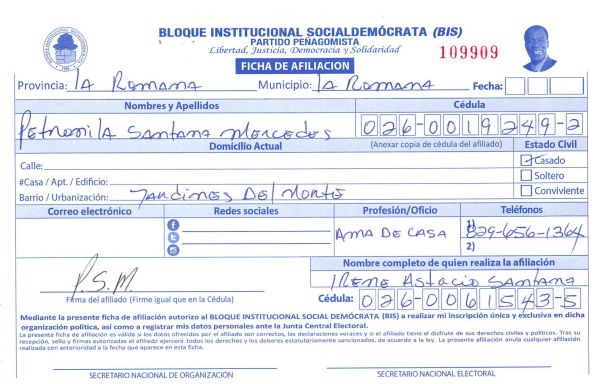 BLOQUE INSTITUCIONAL SOCIALDEMÓCRATA (BIS)
PARTIDO PEÑAGOMISTA
Libertad, Justicia, Democracia y Solidaridad
109909
FICHA DE AFILIACION
Provincia: LA Romana Municipio: LA Romana Fecha:
Nombres y Apellidos Cédula
Petronila Santana Mercedes 026-0019249-2
Domicilio Actual (Anexar copia de cédula del afiliado) Estado Civil
Calle: Casado
#Casa / Apt. / Edificio: Soltero
Barrio / Urbanización: Jardines Del Norte Conviviente
Correo electrónico Redes sociales Profesión/Oficio Teléfonos
AMA DE CASA 1) 829-656-1364
2)
Nombre completo de quien realiza la afiliación
P.S.M Irene Astacio Santana
Firma del afiliado (Firme igual que en la Cédula) Cédula: 026-0061543-5
Mediante la presente ficha de afiliación autorizo al BLOQUE INSTITUCIONAL SOCIAL DEMÓCRATA (BIS) a realizar mi inscripción única y exclusiva en dicha
organización política, así como a registrar mis datos personales ante la Junta Central Electoral.
La presente ficha de afiliación es válida si los datos ofrecidos por el afiliado son correctos, las declaraciones veraces y si el afiliado tiene el disfrute de sus derechos civiles y políticos. Tras su
recepción, sello y firmas autorizadas el afiliado ejercerá todos los derechos y los deberes estatutariamente sancionados, de acuerdo a la ley. La presente afiliación anula cualquier afiliación
realizada con anterioridad a la fecha que aparece en esta ficha.
SECRETARIO NACIONAL DE ORGANIZACIÓN SECRETARIO NACIONAL ELECTORAL